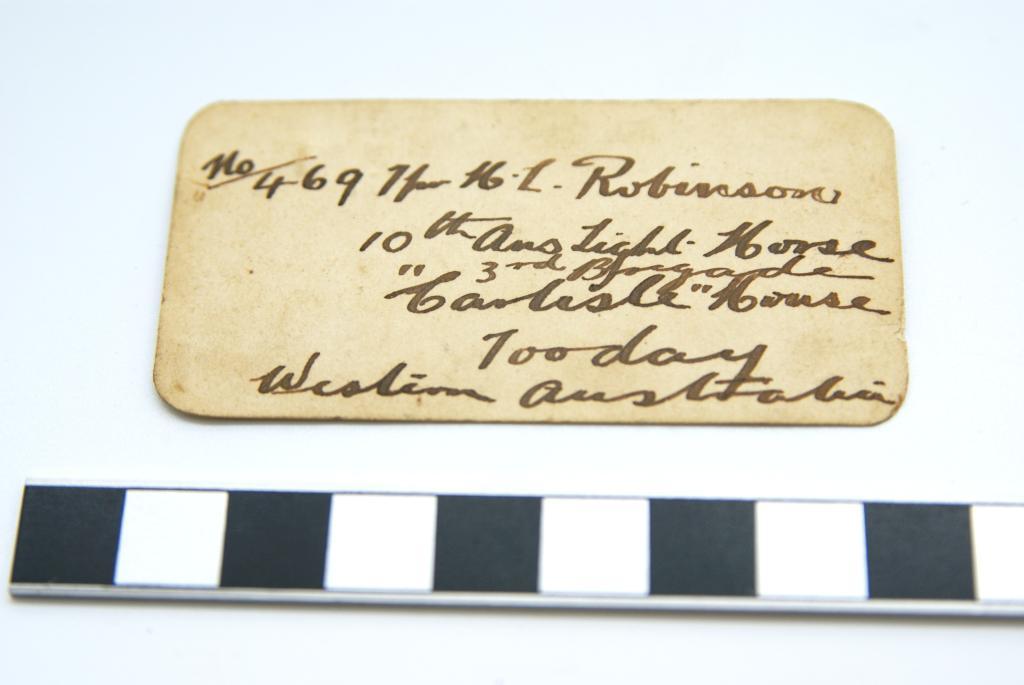 No 469 Tpr H. L. Robinson
10th Aus Light Horse
3rd Brigade
"Carlisle" House
Tooday
Western Australia